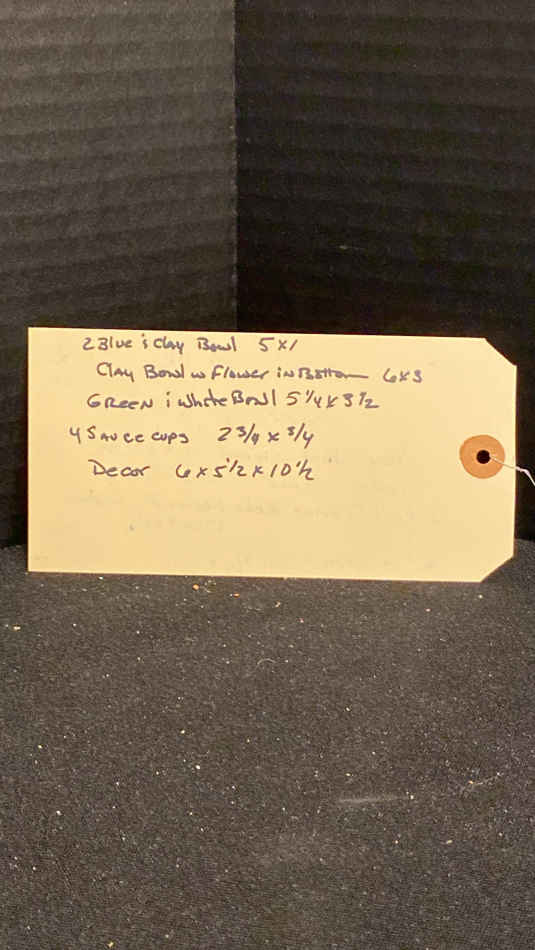 2 Blue & Clay Bowl 5x1
Clay Bowl w Flower in Bottom 6x3
GREEN & White Bowl 5 1/4 x 3 1/2
4 Sauce cups 2 3/4 x 3/4
Decor 6 x 5 1/2 x 10 1/2